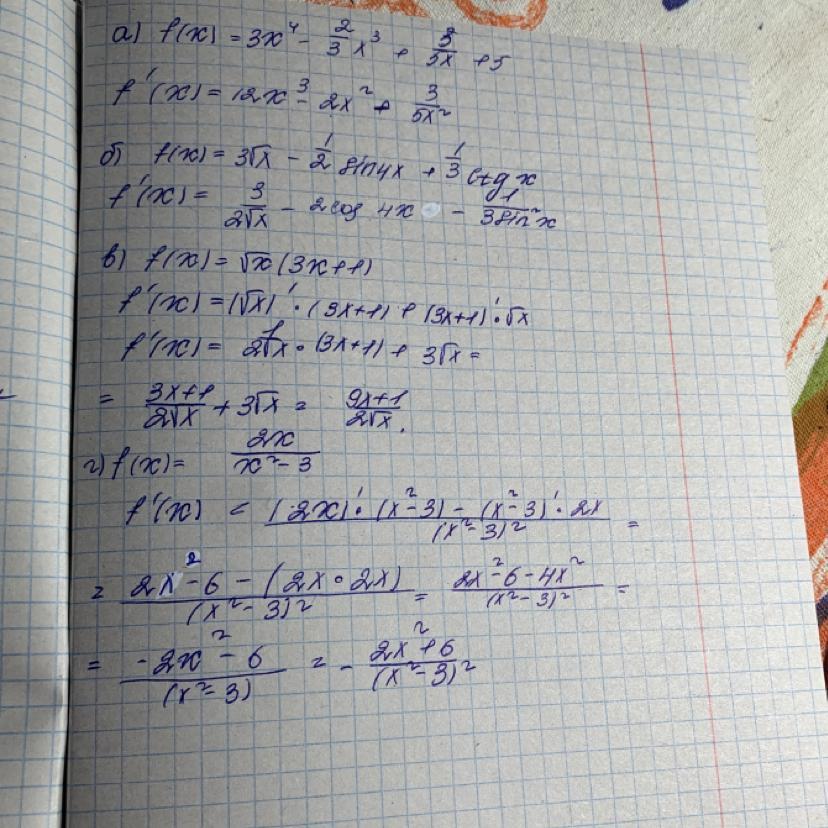 а) f(x) = 3x⁴ - 2/3 x³ + 3/5x + 5
f'(x) = 12x³ - 2x² + 3/5x²
б) f(x) = 3√x - 1/2 sin4x + 1/3 ctg x
f'(x) = 3/2√x - 2cos 4x - 1/3sin²x
в) f(x) = √x (3x+1)
f'(x) = (√x)' · (3x+1) + (3x+1)' · √x
f'(x) = 1/2√x · (3x+1) + 3√x =
= 3x+1/2√x + 3√x = 9x+1/2√x.
г) f(x) = 2x/x²-3
f'(x) = (2x)' · (x²-3) - (x²-3)' · 2x/(x²-3)² =
= 2x²-6-(2x·2x)/(x²-3)² = 2x²-6-4x²/(x²-3)² =
= -2x²-6/(x²-3) = - 2x²+6/(x²-3)²